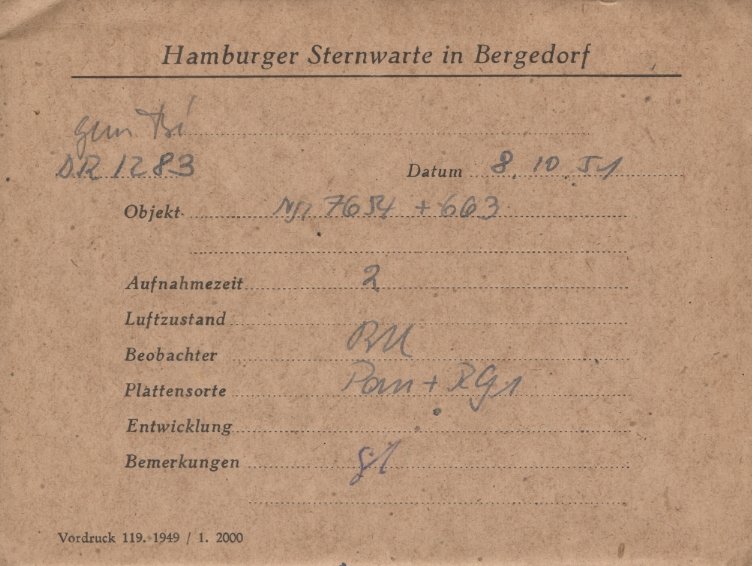 Hamburger Sternwarte in Bergedorf
gem. Bi
DR 1283 Datum 8. 10. 51
Objekt 7654 + 663
Aufnahmezeit 2
Luftzustand
Beobachter
Plattensorte Pan +
Entwicklung
Bemerkungen
Vordruck 119. 1949 / 1. 2000